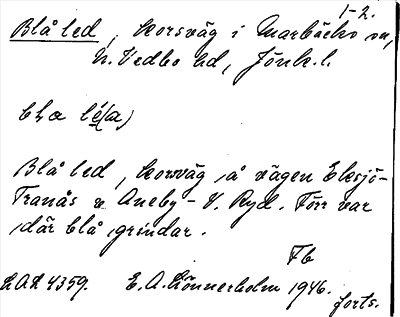 1-2.
Blå led, korsväg i Marbäcks sn,
N. Vedbo hd, Jönk. l.
bla lé(a)
Blå led, korsväg å vägen Eksjö-
Tranås o Aneby - V. Ryd. Förr var
där blå grindar.
Fb
LAL 4359. E. A. Lönnerholm 1946.
forts.